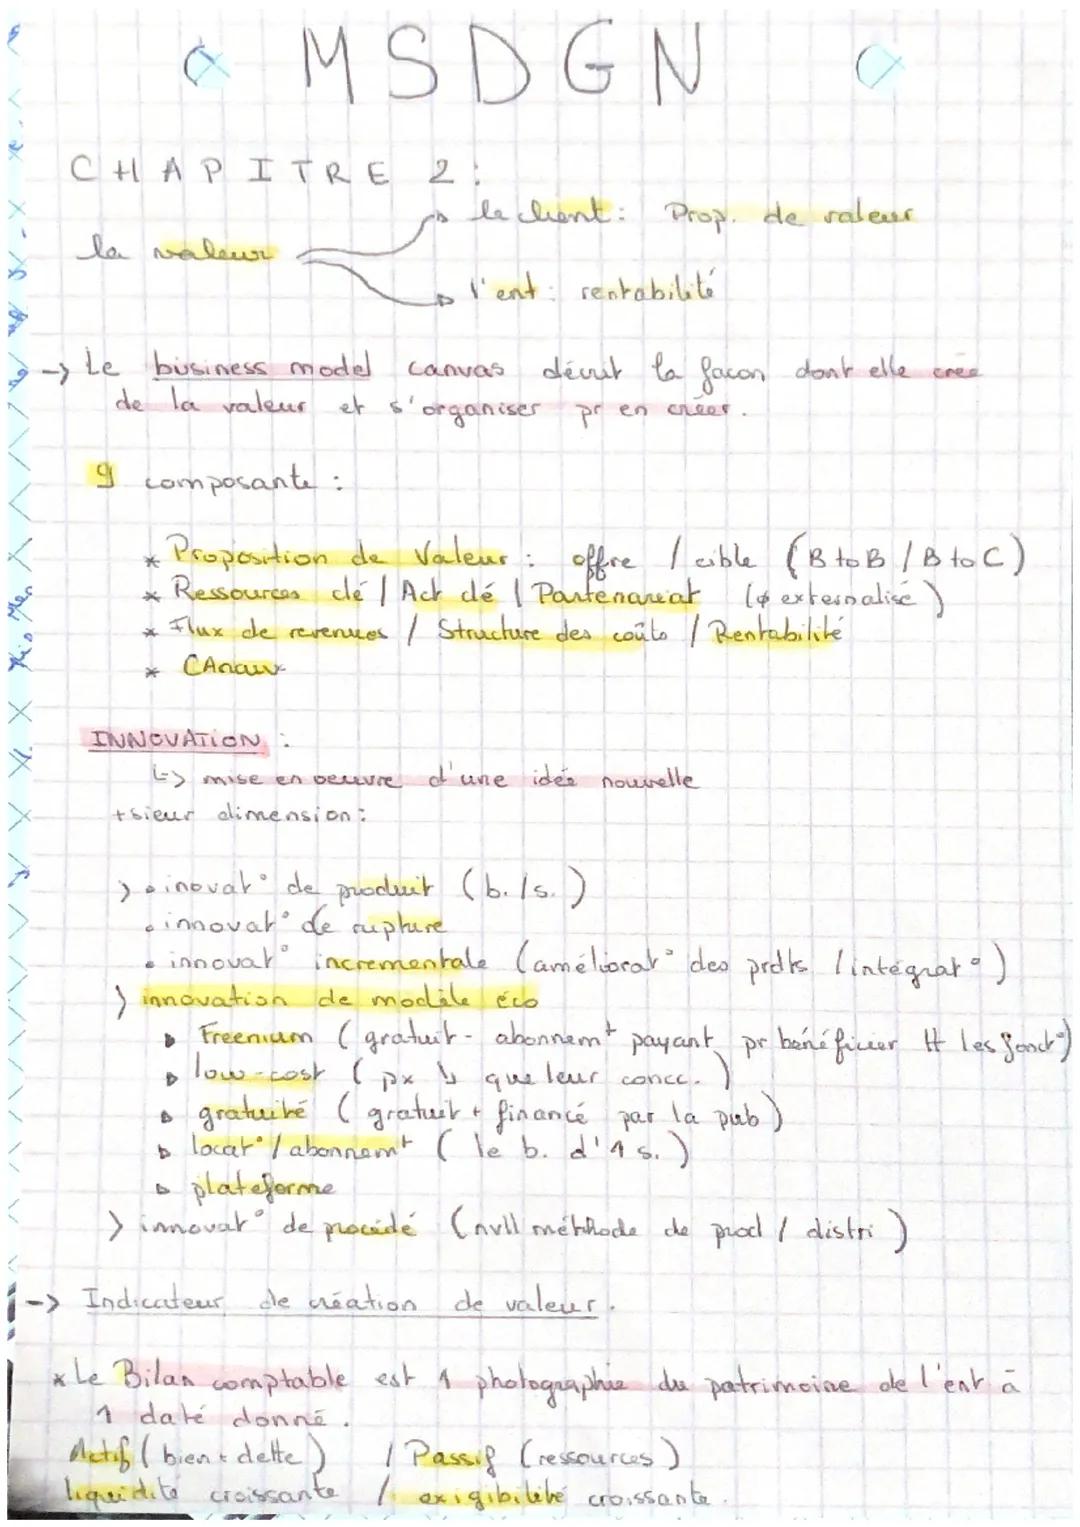 MSDGN
CHAPITRE 2 :
le client : Prop. de valeur
la valeur
l'ent : rentabilité
-> Le business model canvas décrit la façon dont elle crée
de la valeur et s'organiser pr en créer.
9 composante :
* Proposition de Valeur : offre / cible (B to B / B to C)
* Ressources clé / Act clé / Partenariat (ϕ externalisé)
* Flux de revenues / Structure des coûts / Rentabilité
* CAnaux
INNOVATION :
↳> mise en oeuvre d'une idée nouvelle
+sieur dimension :
> • inovat° de produit (b. /s.)
• innovat° de rupture
• innovat° incrementale (améliorat° des prdts / intégrat°)
> innovation de modèle éco
▹ Freenium (gratuit - abonnemt payant pr bénéficier tt les fonct°)
▹ low-cost (px ↘ que leur concc.)
▹ gratuité (gratuit + financé par la pub)
▹ locat° / abonnemt (le b. d'1 s.)
▹ plateforme
> innovat° de procédé (nvll méthhode de prod / distri)
-> Indicateur de création de valeur.
* Le Bilan comptable est 1 photographie du patrimoine de l'ent à
1 daté donné.
Actif (bien + dette) / Passif (ressources)
liquidité croissante / exigibilité croissante.